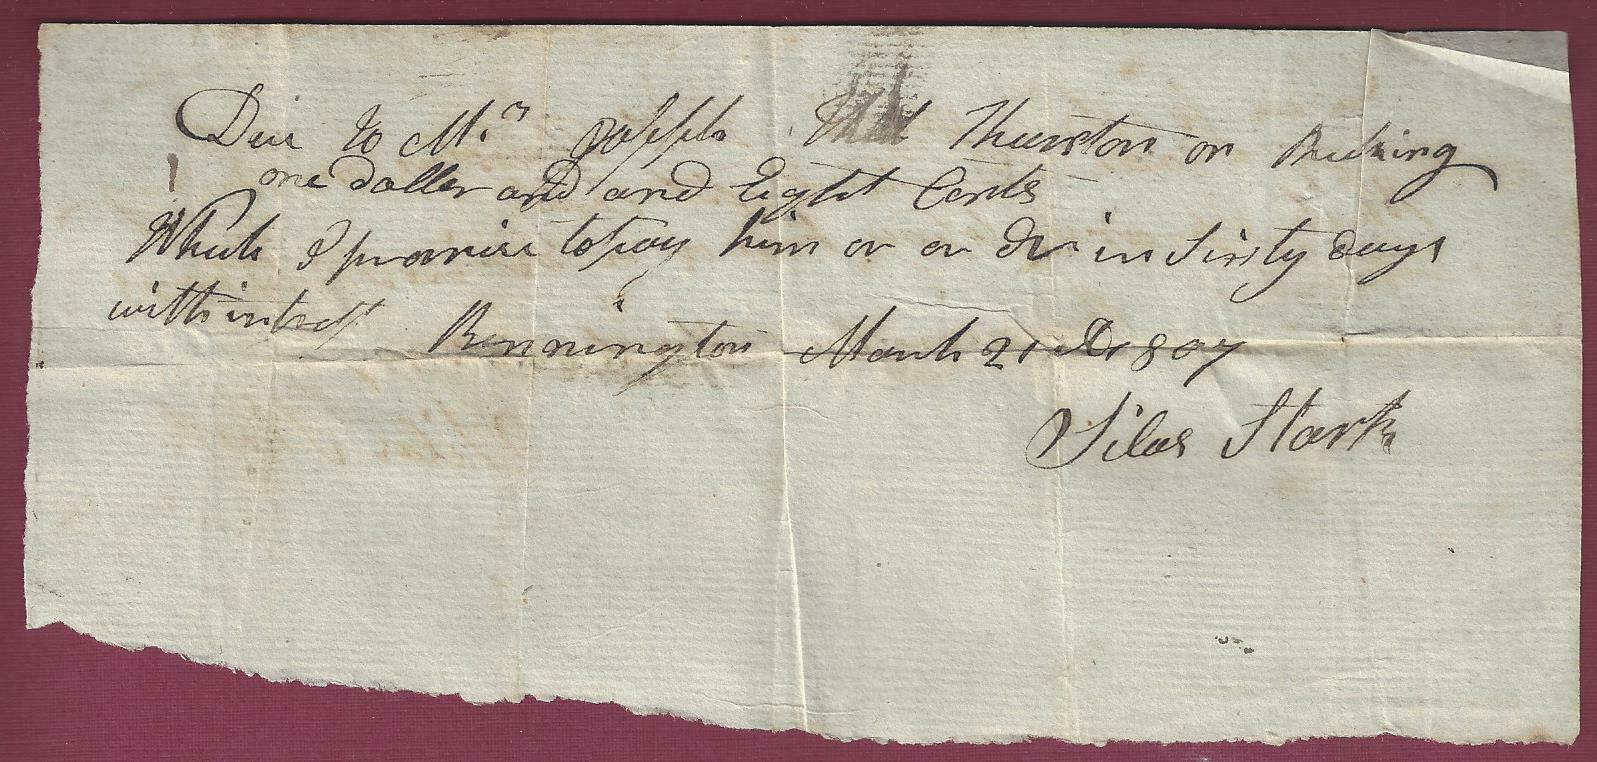 Due to Mr Joseph Thurston on Recking
one doller and and Eight Cents
Which I promise to pay him or or dr in Sixty days
with intrest Bennington March 21 AD 1807
Silas Stark